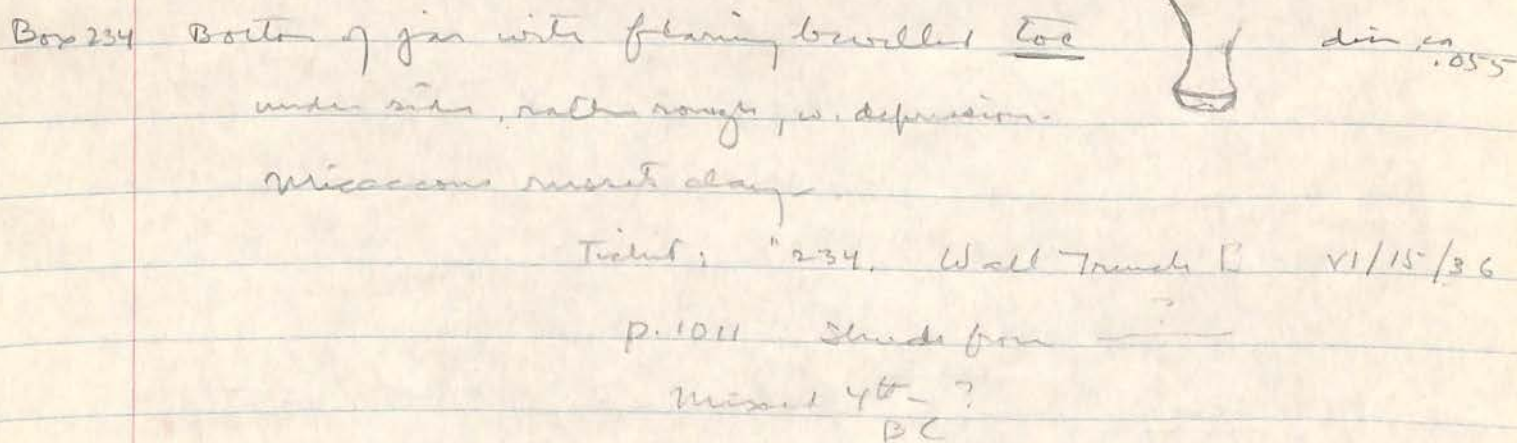 Box 234 Bottom of jar with flaring bevelled toe diam. ca .055
under side, rather rough, w. depression.
Micaceous russet clay
Ticket: "234. Wall Trench E VI/15/36
p. 1011 Sherds from ?
Mixed 4th - ?
BC